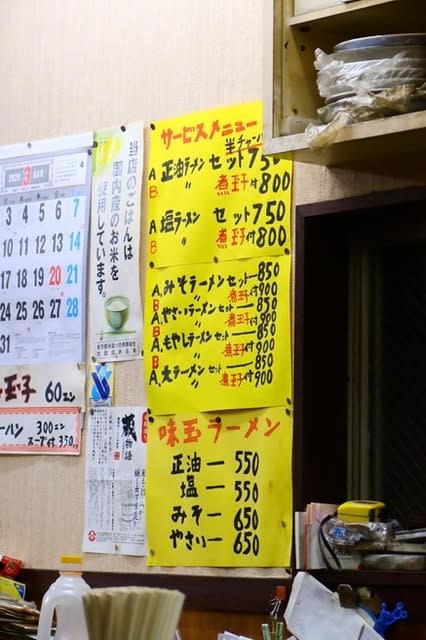 サービスメニュー
半チャーハン
A 正油ラーメン セット 750
B 〃 煮玉子付 800
A 塩ラーメン セット 750
B 〃 煮玉子付 800
A みそラーメン セット—850
B 〃 煮玉子付 900
A やさいラーメン セット—850
B 〃 煮玉子付 900
A もやしラーメン セット—850
B 〃 煮玉子付 900
A 大ラーメン セット—850
B 〃 煮玉子付 900
味玉ラーメン
正油— 550
塩— 550
みそ— 650
やさい— 650
当店のごはんは
国内産のお米を
使用しています。
3 MAR
4
3 4 5 6 7
10 11 12 13 14
17 18 19 20 21
24 25 26 27 28
31
玉子 60エン
ーハン 300エン
スープ付 350
蔵
物語